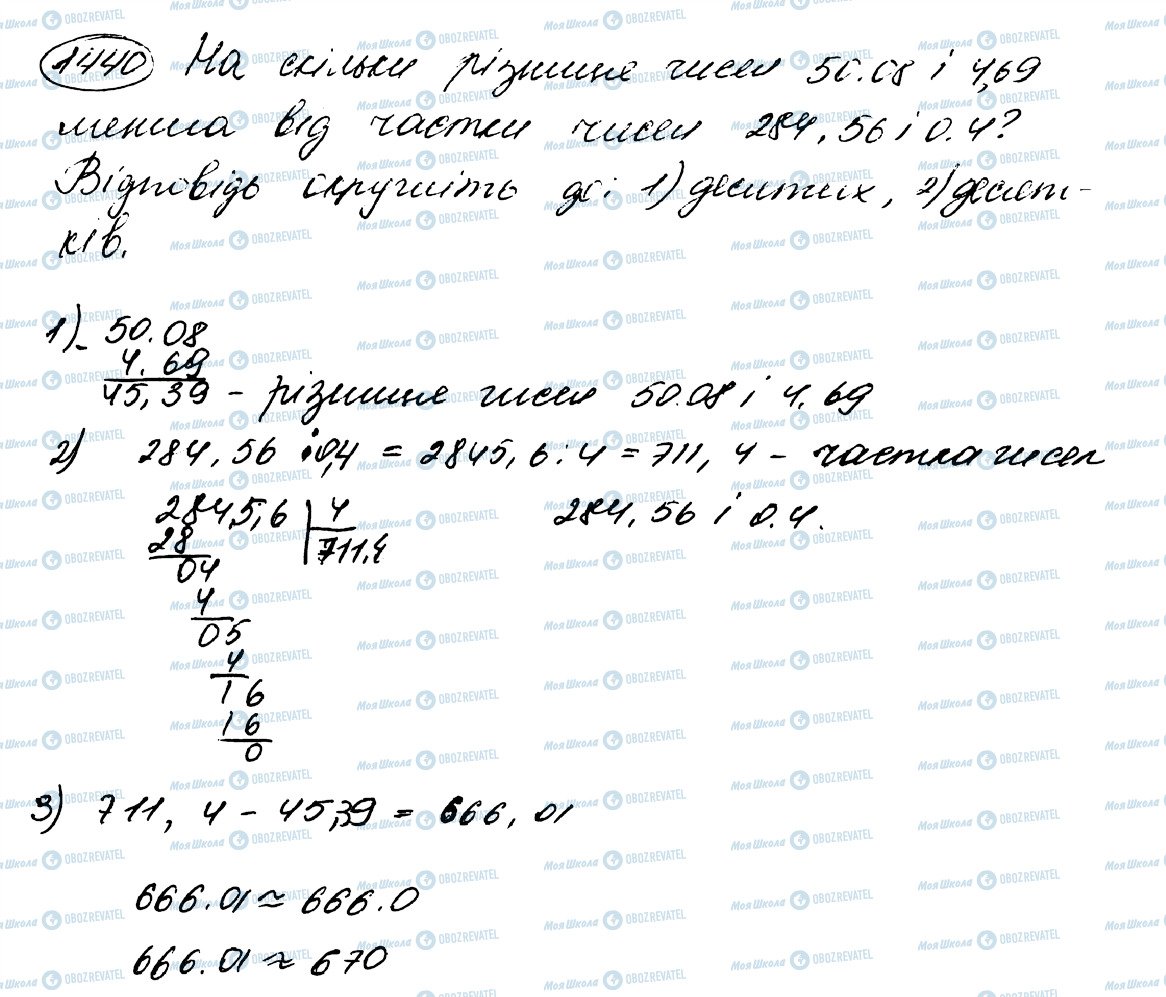 1440 На скільки різниця чисел 50.08 і 4,69
менша від частки чисел 284,56 і 0.4?
Відповідь округліть до: 1) десятих, 2) десят-
ків.
1) - 50.08
4.69
45,39 - різниця чисел 50.08 і 4.69
2) 284,56 : 0,4 = 2845,6 : 4 = 711,4 - частка чисел
284,56 і 0.4.
2845,6 | 4
28 711,4
04
4
05
4
16
16
0
3) 711,4 - 45,39 = 666,01
666.01 ≈ 666.0
666.01 ≈ 670
МояШкола OBOZREVATEL